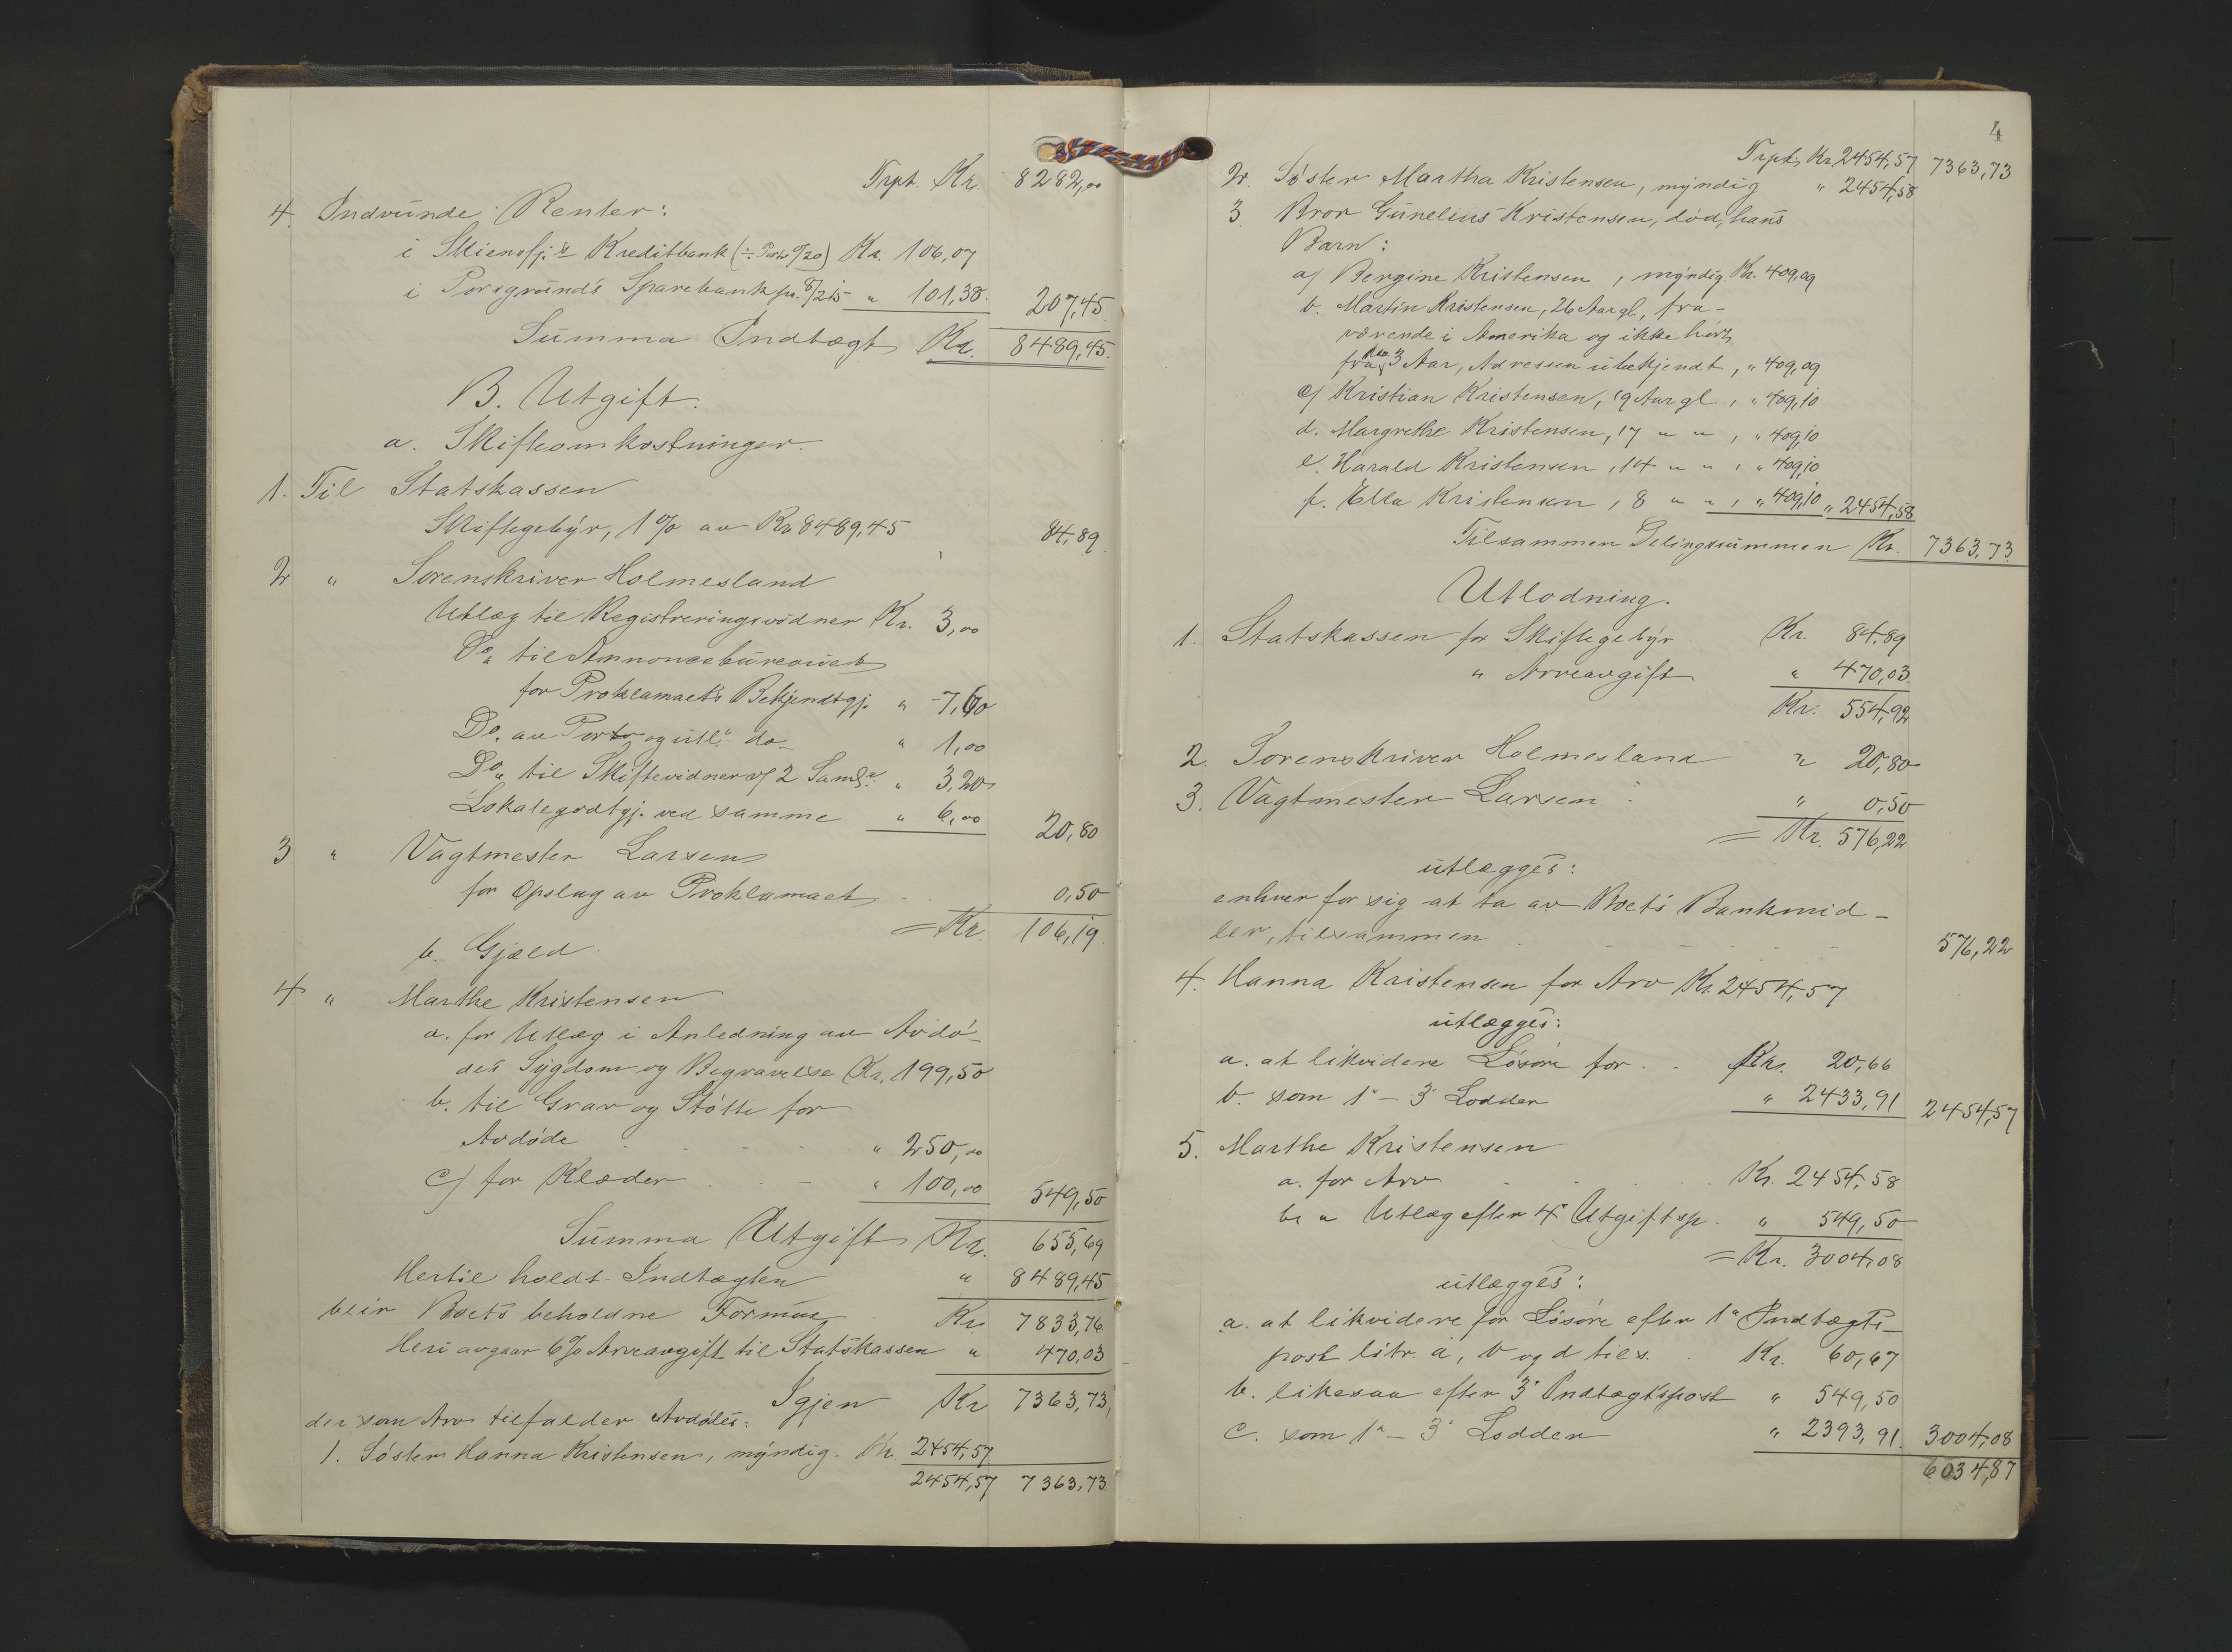 Trpt. Kr. 8282,00
4. Indvundne Renter:
i Skiensfj.s Kreditbank (÷ Porto 0/20) Kr. 106,07
i Porsgrunds Sparebank pr. 8/2 15 " 101,38 207,45
Summa Indtægt Kr. 8489,45
B. Utgift.
a. Skifteomkostninger.
1. Til Statskassen
Skiftegebyr, 1% av Kr 8489,45 84,89
2 " Sorenskriver Holmesland
Utlæg til Registreringsvidner Kr. 3,00
Do. til Annoncebureauet
for Proklamaets Bekjendtgj. " 7,60
Do. av Porto og utl. do. " 1,00
Do. til Skiftevidner v/ 2 Saml. " 3,20
Lokalegodtgj. ved samme " 6,00 20,80
3 " Vagtmester Larsen
for Opslag av Proklamaet 0,50
= Kr. 106,19
b. Gjæld
4 " Marthe Kristensen
a. for Utlæg i Anledning av Avdø-
des Sygdom og Begravelse Kr. 199,50
b. til Grav og Støtte for
Avdøde " 250,00
c) for Klæder " 100,00 549,50
Summa Utgift Kr. 655,69
Hertil holdt Indtægten " 8489,45
blir Boets beholdne Formue Kr. 7833,76
Heri avgaar 6% Arveavgift til Statskassen " 470,03
Igjen Kr 7363,73
der som Arv tilfalder Avdødes:
1. Søster Hanna Kristensen, myndig. Kr. 2454,57
2454,57 7363,73
4
Trpt. Kr. 2454,57 7363,73
2. Søster Martha Kristensen, myndig " 2454,58
3 Bror Gunelius Kristensen, død, hans
Barn:
a) Bergine Kristensen, myndig Kr. 409,09
b. Martin Kristensen, 26 Aar gl, fra-
værende i Amerika og ikke hørt
fra 3 Aar, Adressen ubekjendt, " 409,09
c) Kristian Kristensen, 19 Aar gl, " 409,10
d. Margrethe Kristensen, 17 " " , " 409,10
e. Harald Kristensen, 14 " " , " 409,10
f. Ella Kristensen, 8 " " , " 409,10 " 2454,58
Tilsammen Delingssummen Kr. 7363,73
Utlodning.
1. Statskassen for Skiftegebyr Kr. 84,89
" Arveavgift " 470,03
Kr. 554,92
2. Sorenskriver Holmesland " 20,80
3. Vagtmester Larsen " 0,50
= Kr. 576,22
utlægges:
enhver for sig at ta av Boets Bankmid-
ler, tilsammen 576,22
4. Hanna Kristensen for Arv Kr. 2454,57
utlægges:
a. at likvidere Løsøre for Kr. 20,66
b. som 1 - 3 Lodder " 2433,91 2454,57
5. Marthe Kristensen
a. for Arv Kr. 2454,58
b. " Utlæg efter 4 Utgiftsp. " 549,50
= Kr. 3004,08
utlægges:
a. at likvidere for Løsøre efter 1 Indtægts-
post litr. a, b og d tils. Kr. 60,67
b. likesaa efter 3 Indtægtspost " 549,50
c. som 1 - 3 Lodder " 2393,91 3004,08
6034,87